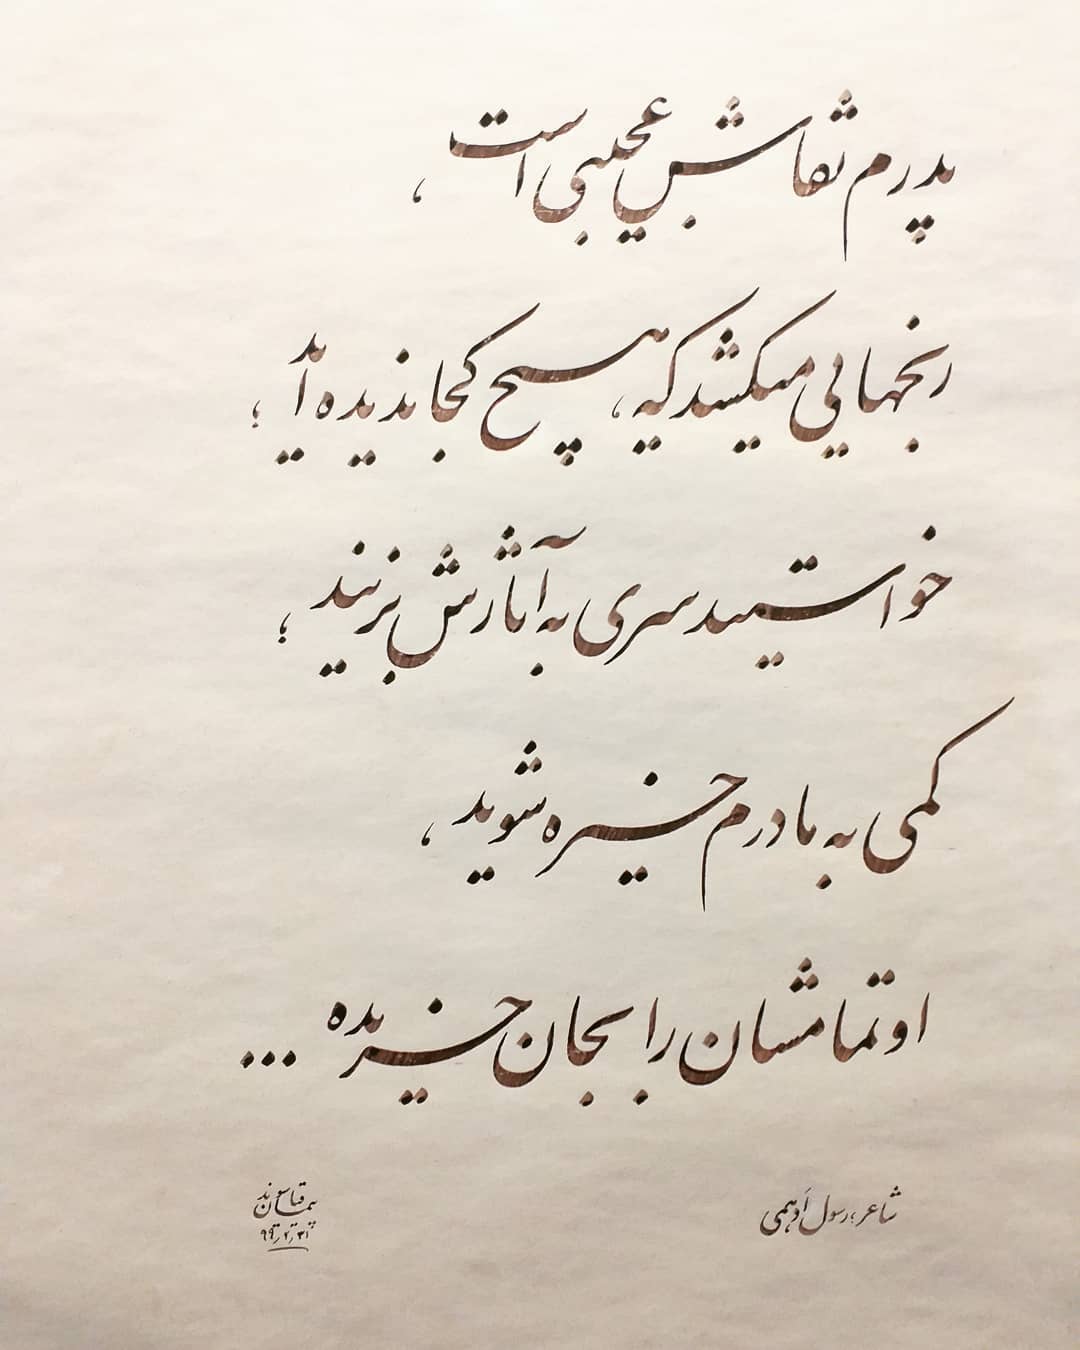 پدرم نقاش عجیبی است،
رنجهایی میکشد که، هیچ کجا ندیده‌اید؛
خواستید سری به آثارش بزنید؛
کمی به مادرم خیره شوید،
او تمامشان را بجان خریده ...
شاعر؛ رسول اَدهمی
پیمان قیاسوند
۹۹٫۲٫۳۱